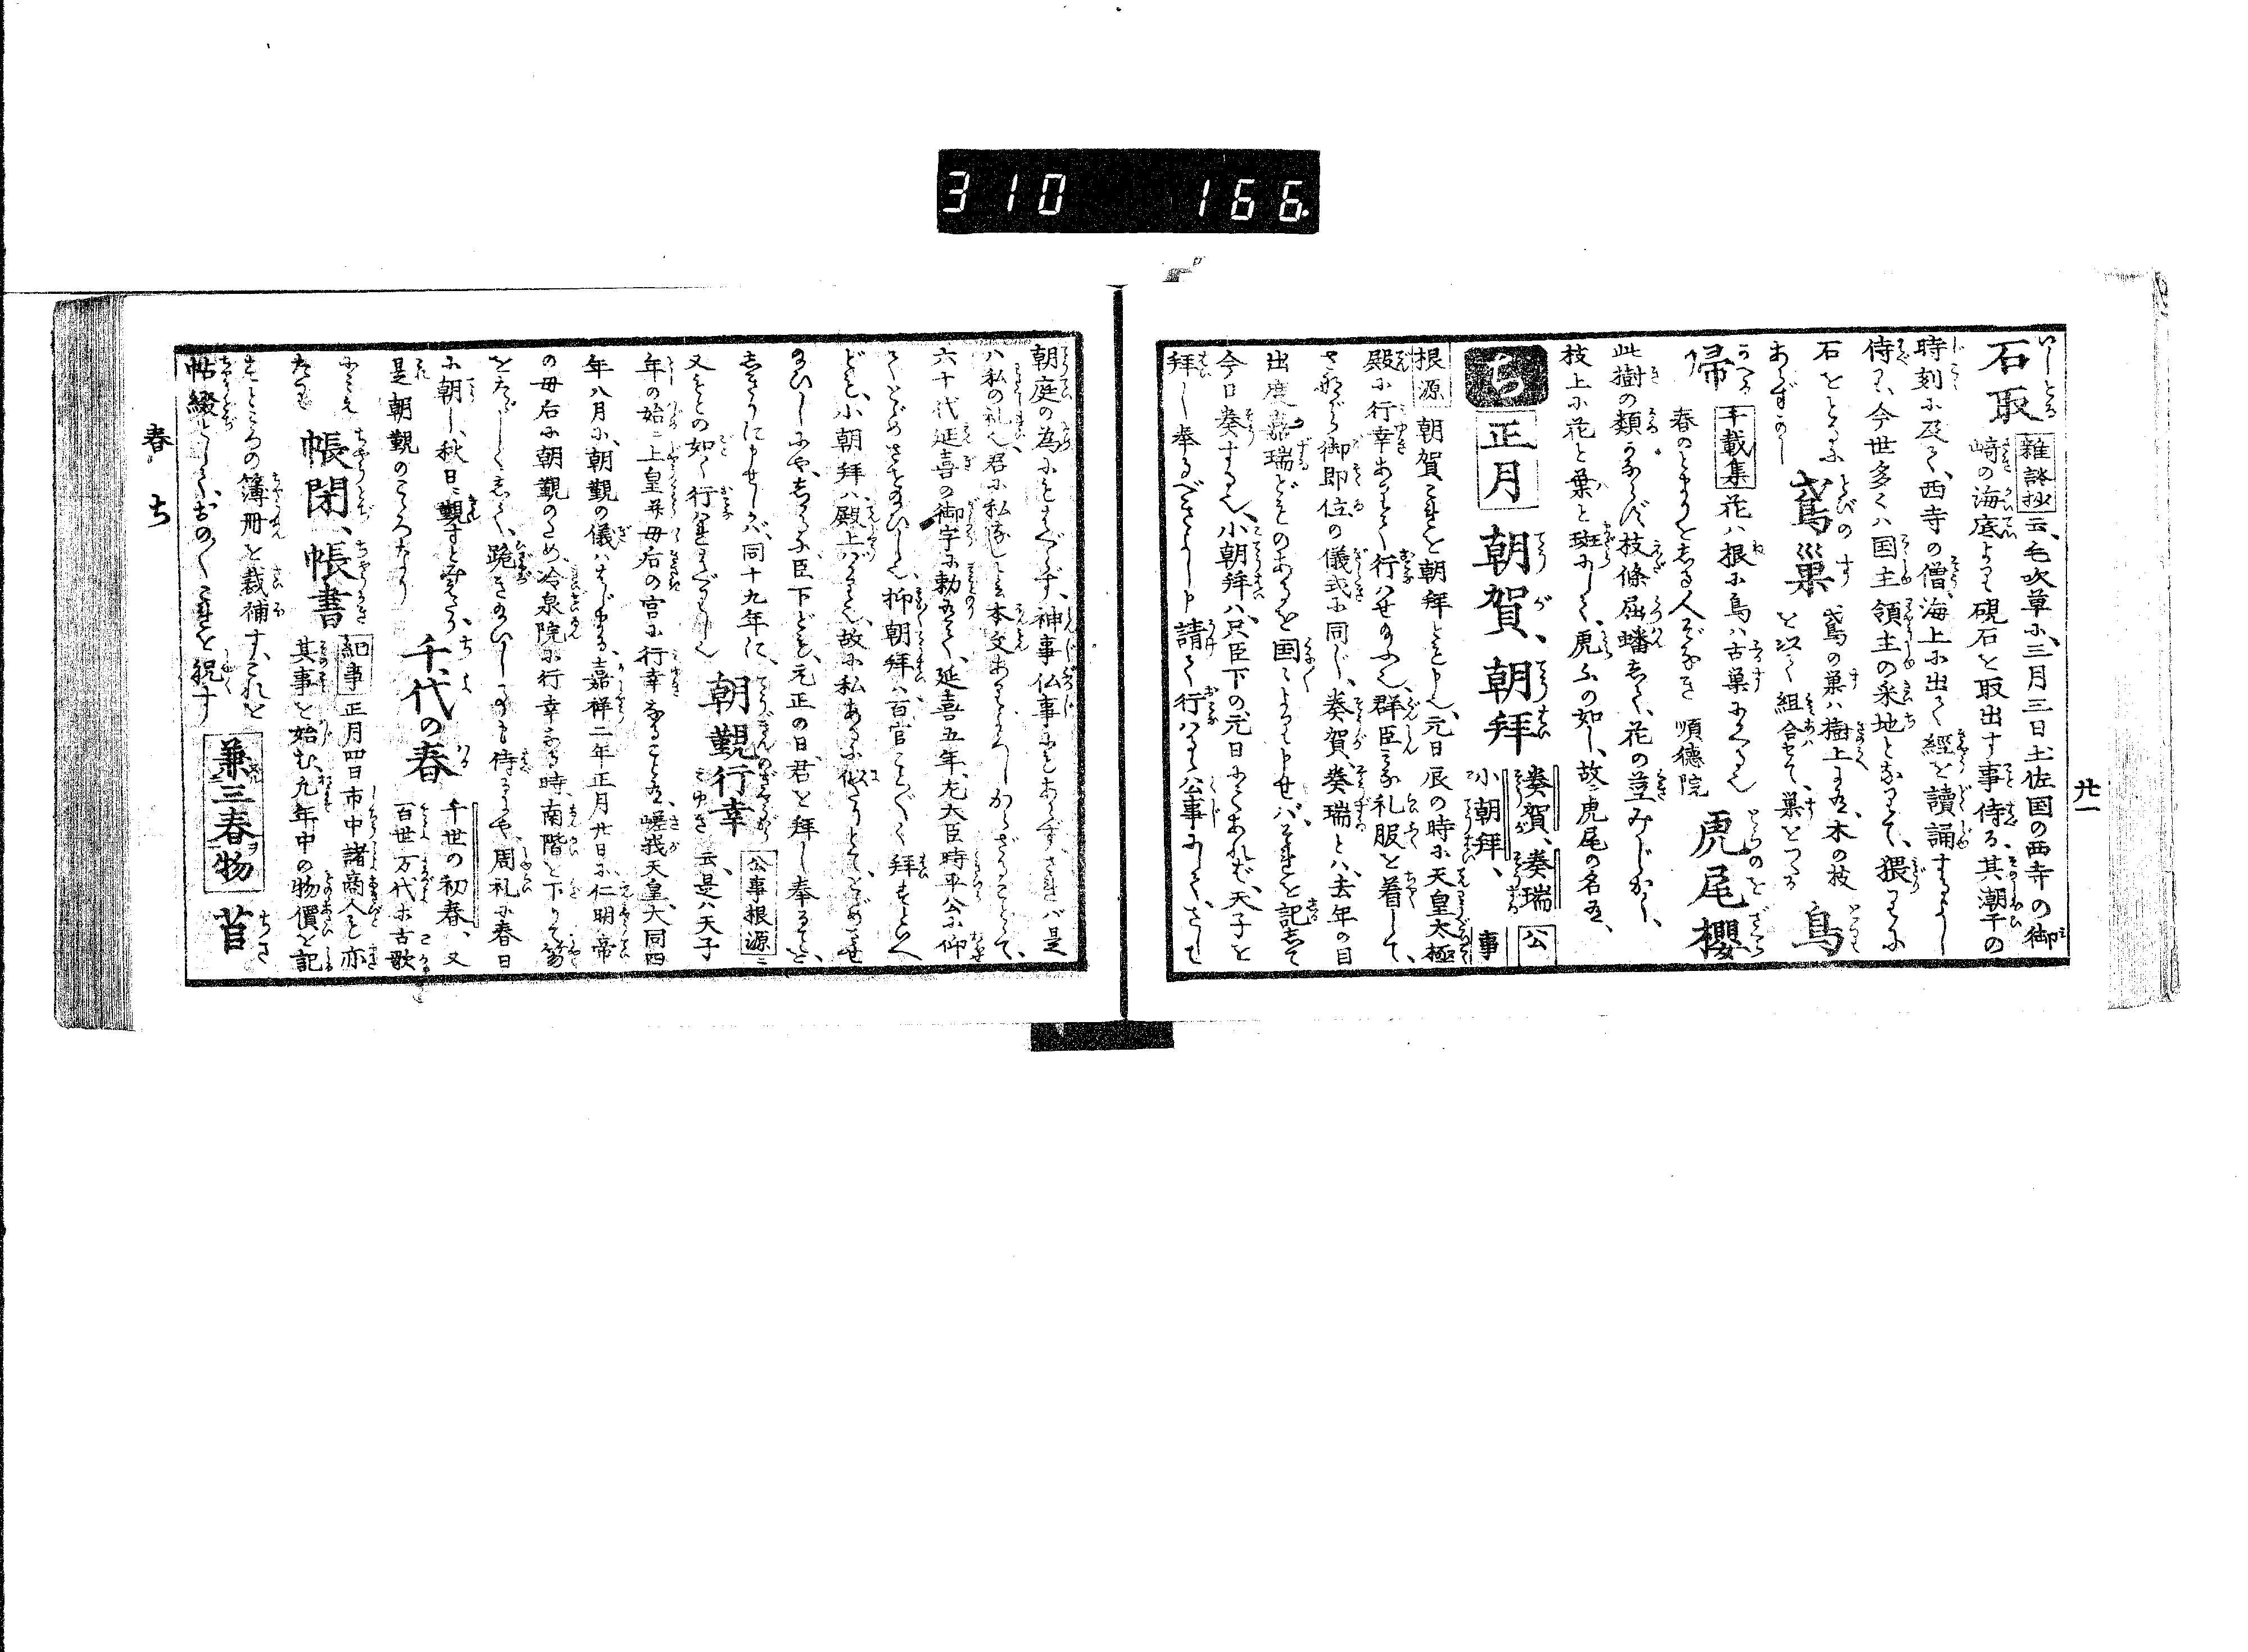 310 166.
廿一
石取 雑談抄云、毛吹草に、三月三日土佐国の西寺の御
崎の海底より硯石を取出す事侍る、其潮干の
時刻に及て、西寺の僧、海上に出て經を讀誦するよし
侍り、今世多くハ国主領主の采地となりて、猥りに
石をとるに
あらずかし
鳶巣 鳶の巣ハ樹上にあり、木の枝
を以て組合せて、巣をつくる
鳥
帰 千載集 花ハ根に鳥ハ古巣にかへる也
春のとまりをしる人ぞなき 順徳院
虎尾櫻
此樹の類ならバ枝條屈蟠して、花の莖みじかし、
枝上に花と葉と斑にして、虎ふの如し、故ニ虎尾の名あり、
ち 正月 朝賀、朝拜 奏賀、奏瑞 小朝拜、 公事
根源 朝賀これを朝拜とも申、元日辰の時に天皇大極
殿に行幸ありて行ハせ給ふ也、群臣みな礼服を着して、
さながら御即位の儀式に同じ、奏賀、奏瑞とハ、去年の目
出度嘉瑞どものあるを国ゝより申せバ、それを記して
今日奏する也、小朝拜ハ、只臣下の元日にてあれば、天子を
拜し奉るべきよし申請て行ハるゝ公事にして、さして
朝庭の為にもあらず、神事仏事にもあらず、されバ是
ハ私の礼也、君に私なしと云本文あり
六十代延喜の御宇に勅ありて、延喜五年、左大臣時平公に仰
てとどめさせ給ひし也、抑朝拜ハ百官ことごとく拜すといへ
ども、小朝拜ハ殿上ばかり也、故に私あるに似たりとて、とどめさせ
給ひしにや、しかるに、臣下ども、元正の日、君を拜し奉るを
しきりに申せしかバ、同十九年に、
又もとの如く行ハれ
朝覲行幸 公事根源ニ
云、是ハ天子
年の始ニ上皇并母后の宮に行幸なること也、嵯我天皇大同四
年八月に、朝覲の儀ハはじまる、嘉祥二年正月廿日に仁明帝
の母后に朝覲のため、冷泉院に行幸なる時、南階を下りて笏
をただしくして、跪き給ひし事も侍るにや、周礼に春日
に朝し、秋日ニ覲すと
是朝覲のこころなり
千代の春 千世の初春、又
百世万代ホ古歌
にみえ
たり
帳閉、帳書 紀事 正月四日市中諸商人も亦
其事を始む、九年中の物價を記
すところの簿冊を裁補す、これを
帖綴といふ、おのおのこれを祝す
兼三春物 苣
春 ち